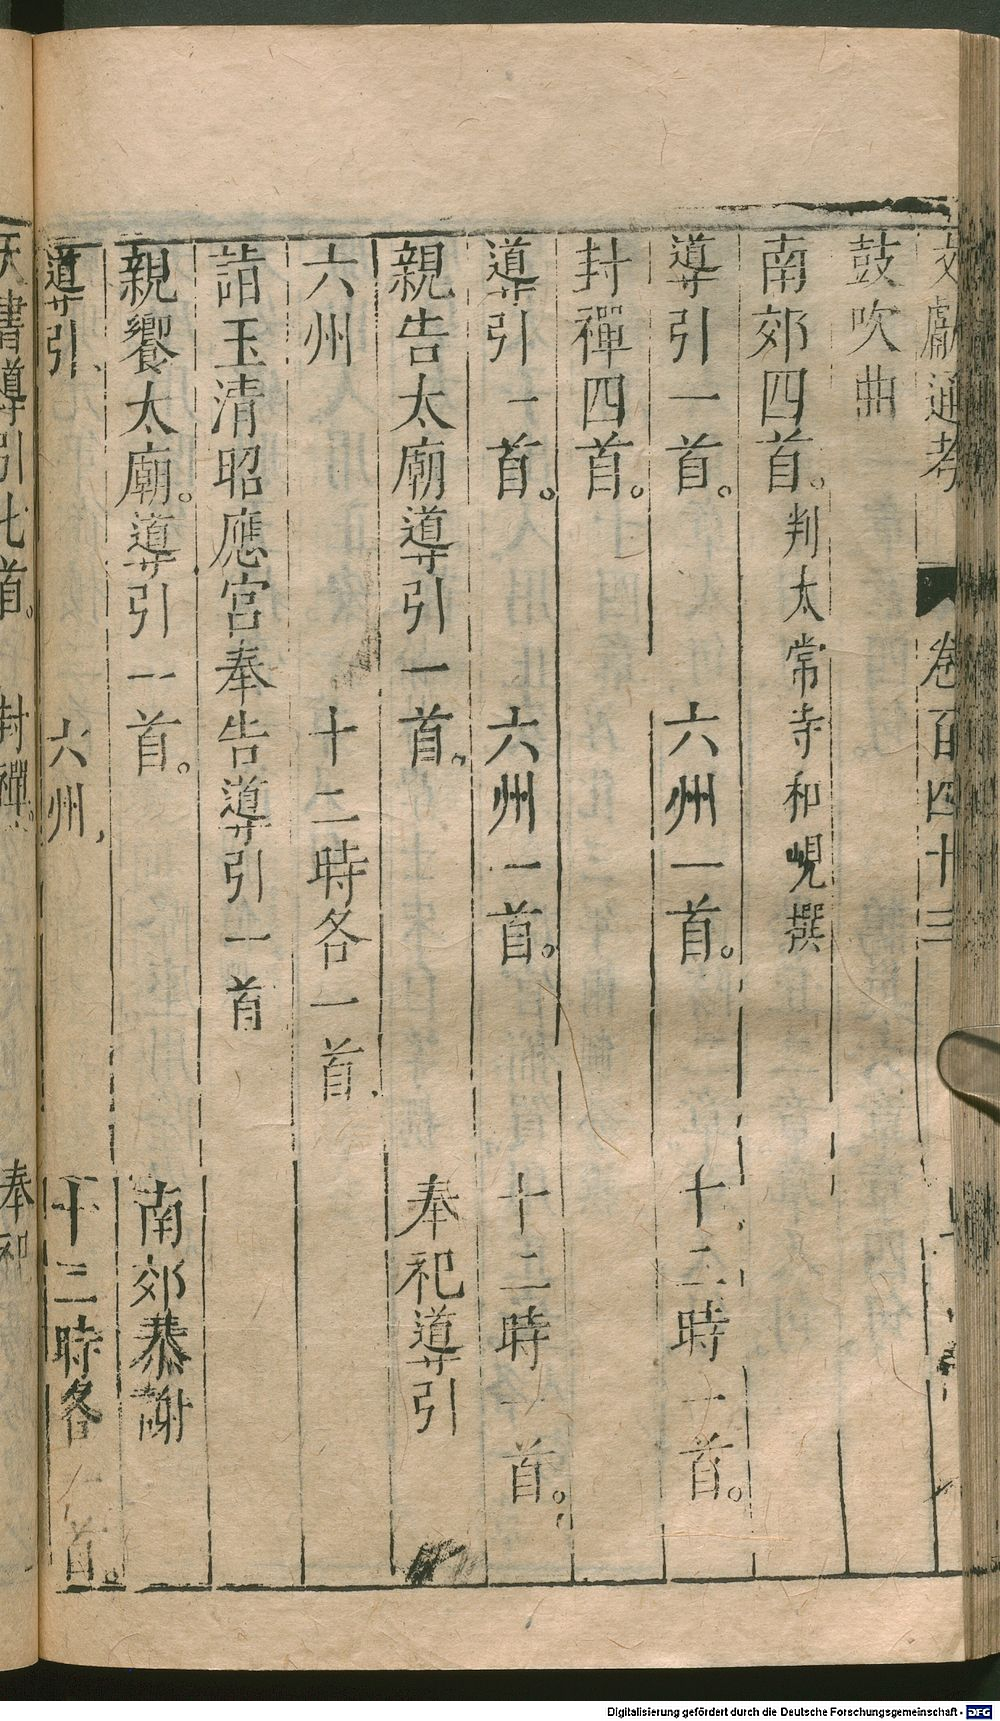 文獻通考 卷百四十三
鼓吹曲
南郊四首。判太常寺和峴撰
導引一首。 六州一首。 十二時一首。
封禪四首。
導引一首。 六州一首。 十二時一首。
親告太廟導引一首。 奉祀導引
六州 十二時各一首
詣玉清昭應宮奉告導引一首
親饗太廟。導引一首。 南郊恭謝
導引、 六州， 十二時各一首。
天書導引七首。 封禪。 奉祀
Digitalisierung gefördert durch die Deutsche Forschungsgemeinschaft - DFG